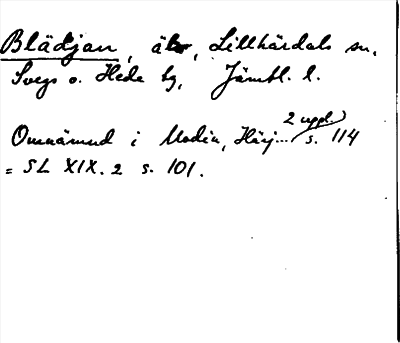 Blädjan, älv, Lillhärdals sn.
Svegs o. Hede tg, Jämtl. l.
2 uppl.
Omnämnd i Modin, Härj... s. 114
= SL XIX. 2 s. 101.